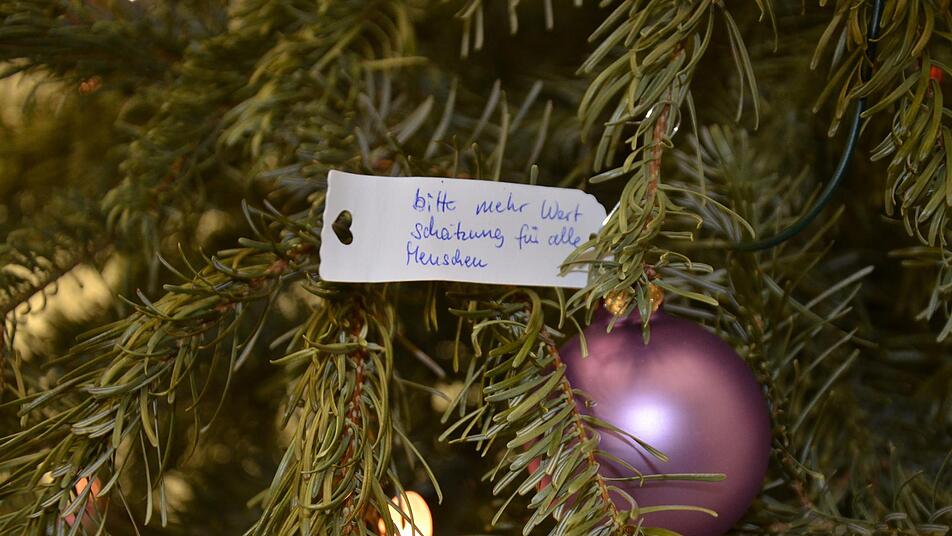 bitte mehr Wert
schätzung für alle
Menschen